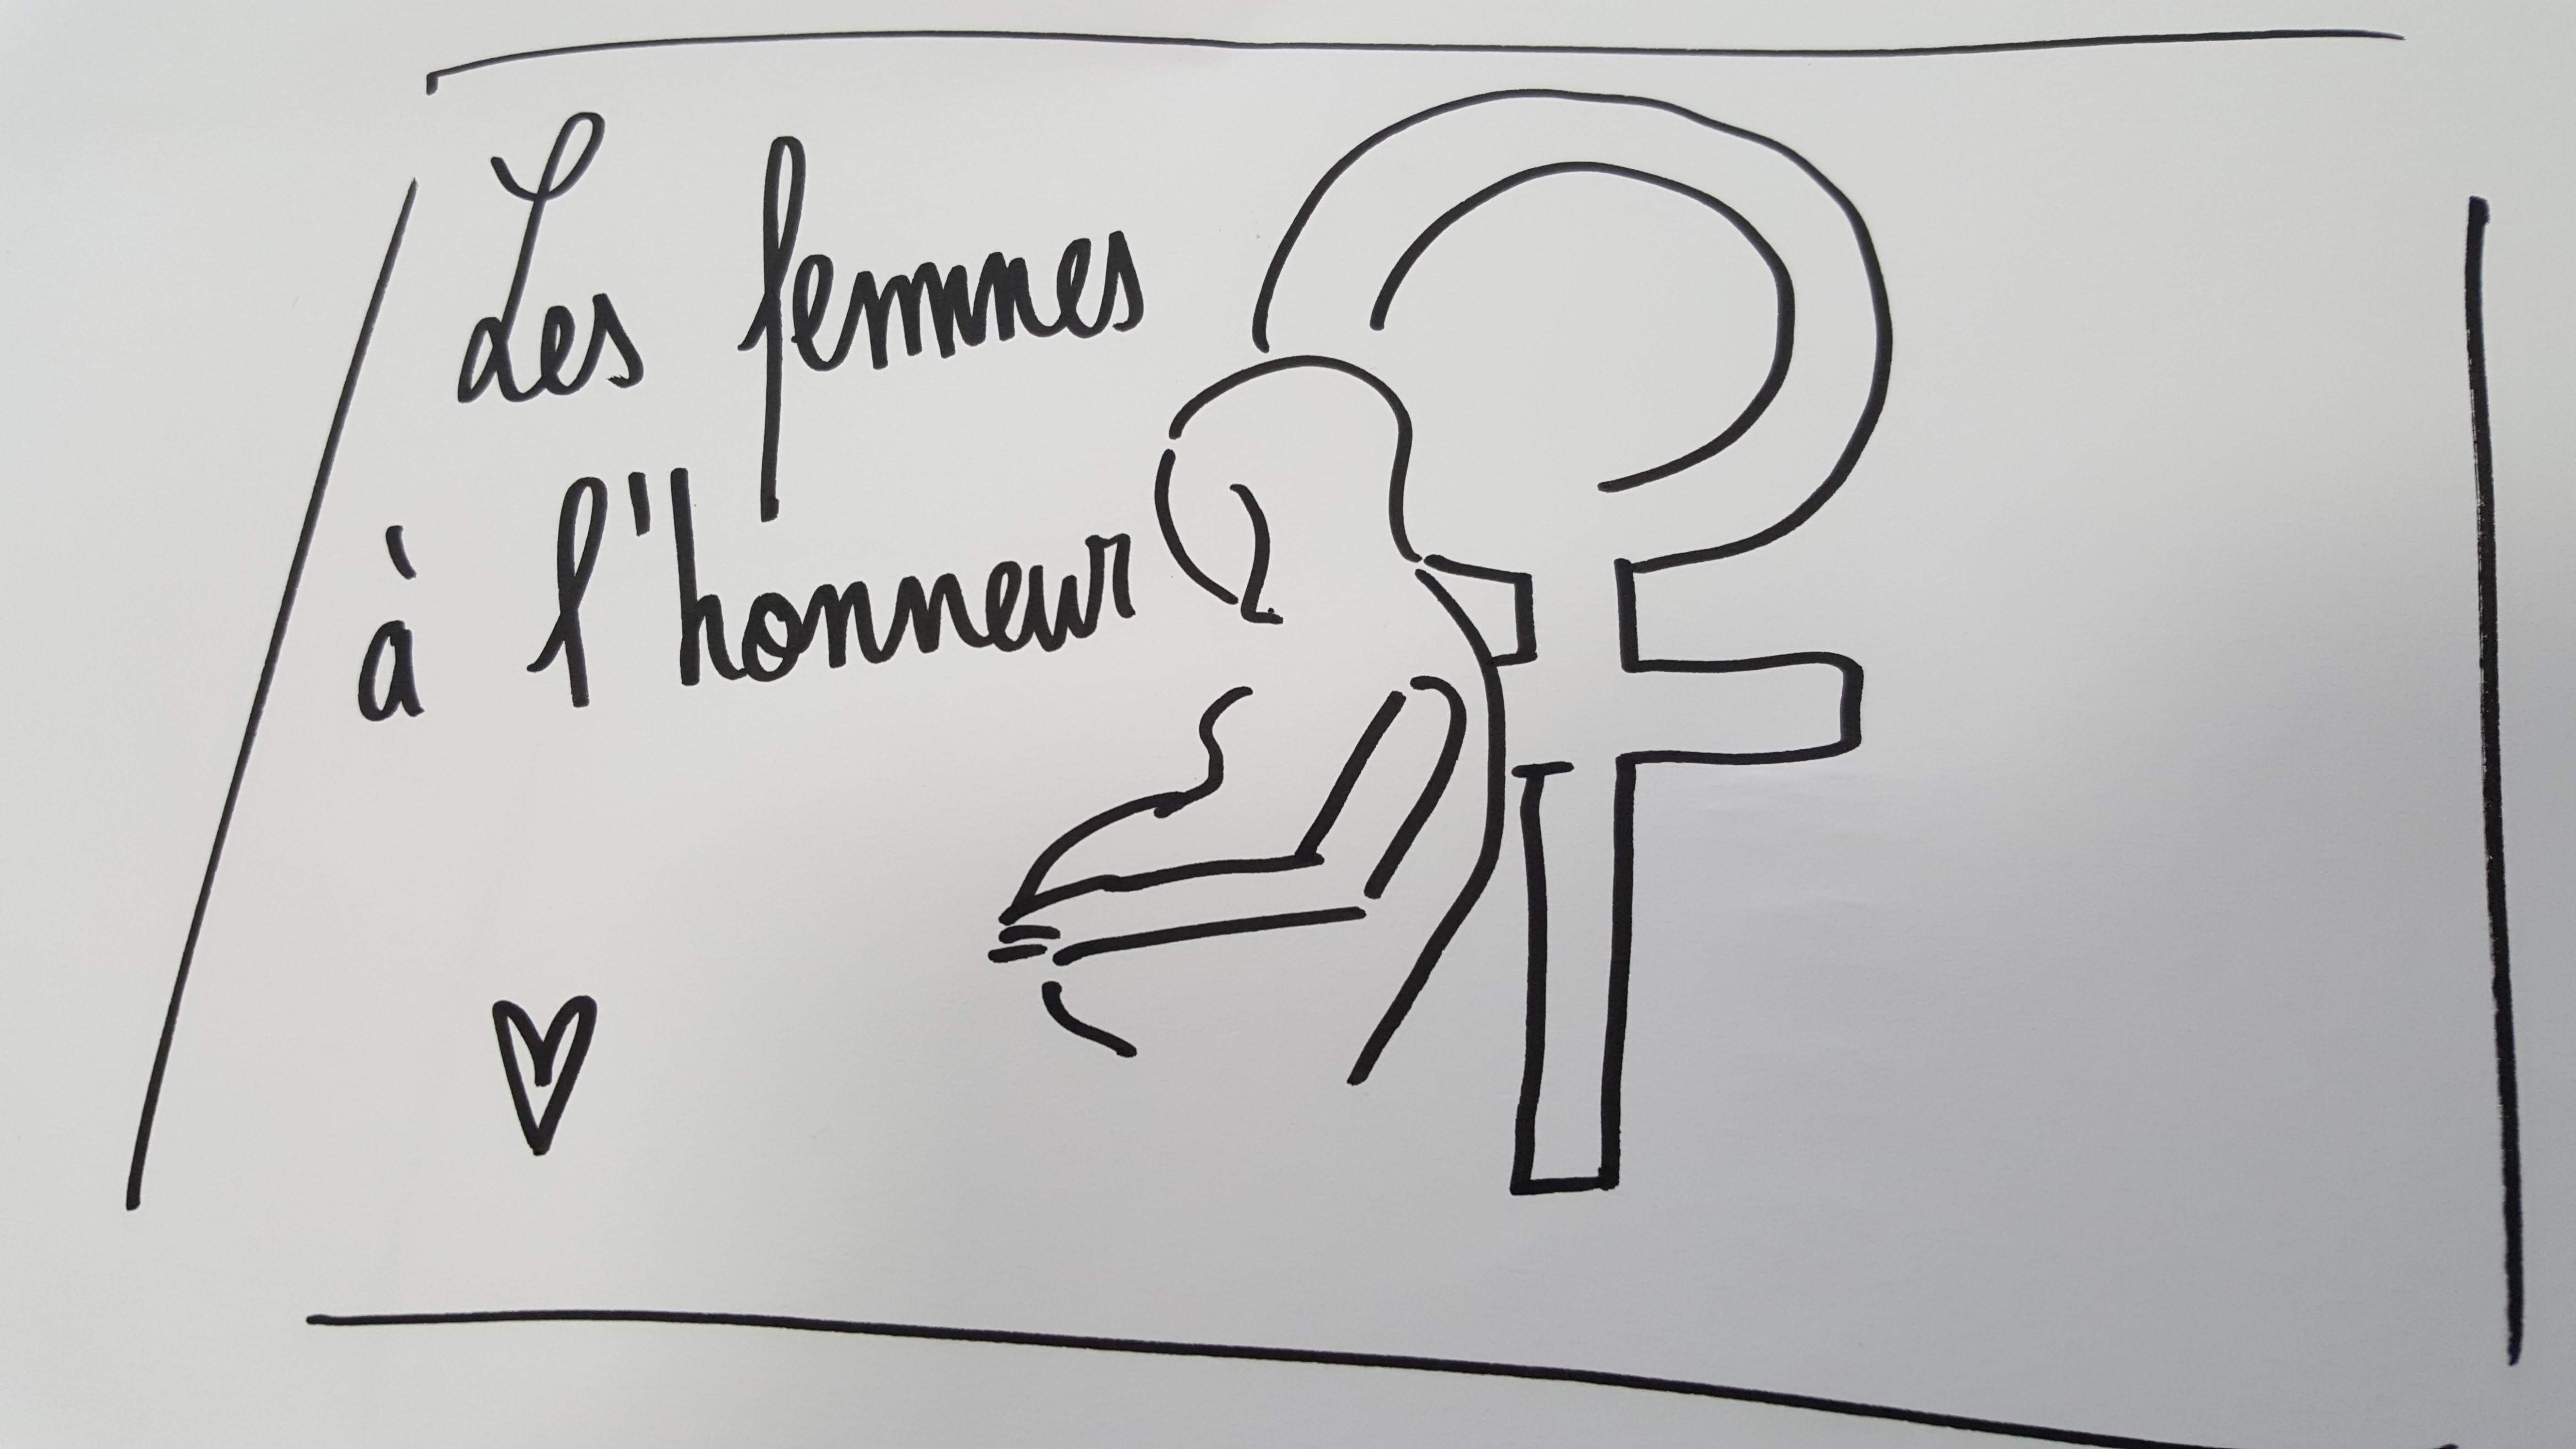 Les femmes
à l'honneur